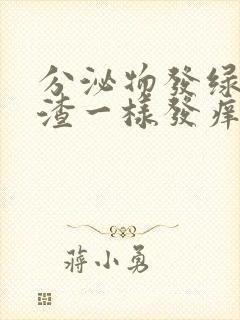 分泌物發绿
渣一樣發痒
蔣小勇